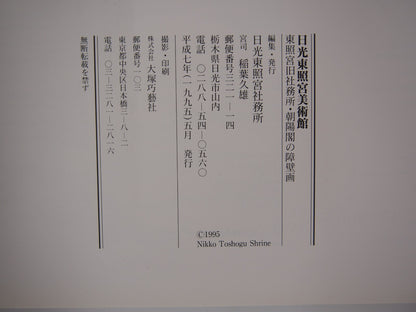 日光東照宮美術館
東照宮旧社務所・朝陽閣の障壁画
編集・発行
日光東照宮社務所
宮司 稲葉久雄
郵便番号三二一―一四
栃木県日光市山内
電話 〇二八八―五四―〇五六〇
平成七年(一九九五)五月 発行
撮影・印刷
株式会社 大塚巧藝社
郵便番号一〇三
東京都中央区日本橋三―八―二
電話 〇三―三二八一―二八一六
無断転載を禁ず
©1995
Nikko Toshogu Shrine